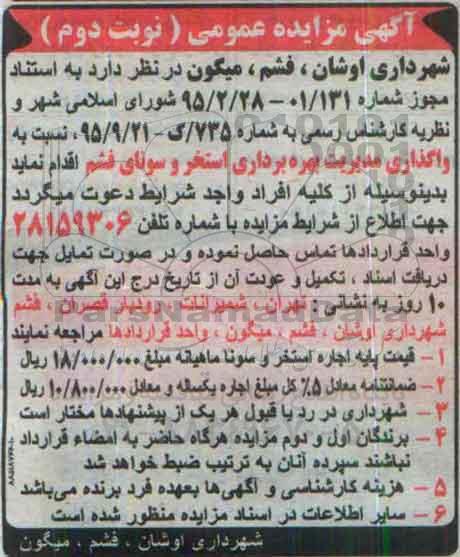 آگهی مزایده عمومی ( نوبت دوم )
شهرداری اوشان ، فشم ، میگون در نظر دارد به استناد
مجوز شماره ۰۱/۱۳۱- ۹۵/۲/۲۸ شورای اسلامی شهر و
نظریه کارشناس رسمی به شماره ۷۳۵/ک- ۹۵/۹/۲۱، نسبت به
واگذاری مدیریت بهره برداری استخر و سونای فشم اقدام نماید
بدینوسیله از کلیه افراد واجد شرایط دعوت میگردد
جهت اطلاع از شرایط مزایده با شماره تلفن ۲۸۱۵۹۳۰۶
واحد قراردادها تماس حاصل نموده و در صورت تمایل جهت
دریافت اسناد ، تکمیل و عودت آن از تاریخ درج این آگهی به مدت
۱۰ روز به نشانی : تهران ، شمیرانات ، رودبار قصران ، فشم
شهرداری اوشان ، فشم ، میگون ، واحد قراردادها مراجعه نمایند
۱- قیمت پایه اجاره استخر و سونا ماهیانه مبلغ ۱۸/۰۰۰/۰۰۰ ریال
۲- ضمانتنامه معادل ۵٪ کل مبلغ اجاره یکساله و معادل ۱۰/۸۰۰/۰۰۰ ریال
۳- شهرداری در رد یا قبول هر یک از پیشنهادها مختار است
۴- برندگان اول و دوم مزایده هرگاه حاضر به امضاء قرارداد
نباشند سپرده آنان به ترتیب ضبط خواهد شد
۵- هزینه کارشناسی و آگهی‌ها بعهده فرد برنده می‌باشد
۶- سایر اطلاعات در اسناد مزایده منظور شده است
شهرداری اوشان ، فشم ، میگون